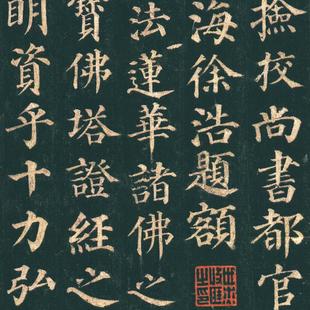 撿挍尚書都官
海徐浩題額
法蓮華諸佛之
寶佛塔證經之
明資乎十力弘